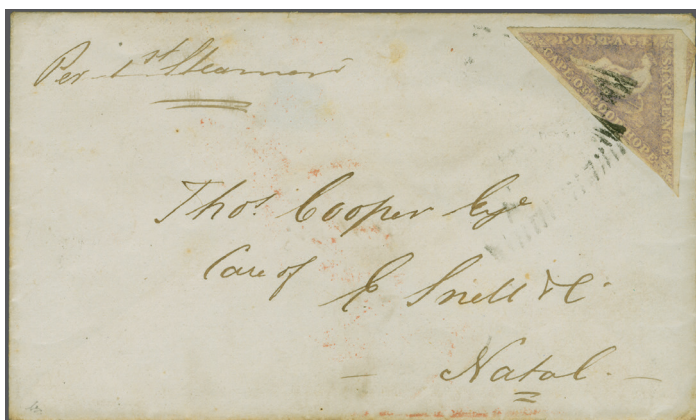 Per 1st Steamer
POSTAGE
SIXPENCE
CAPE OF GOOD HOPE
Thos. Cooper Esqe
Care of
E Snell & Co
Natal.